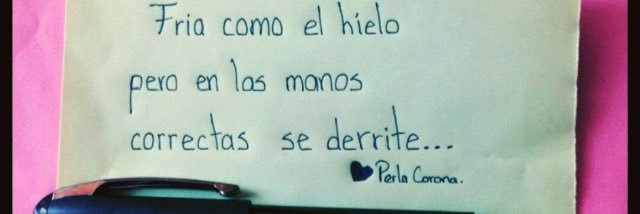 Fria como el hielo
pero en las manos
correctas se derrite...
Perla Corona.